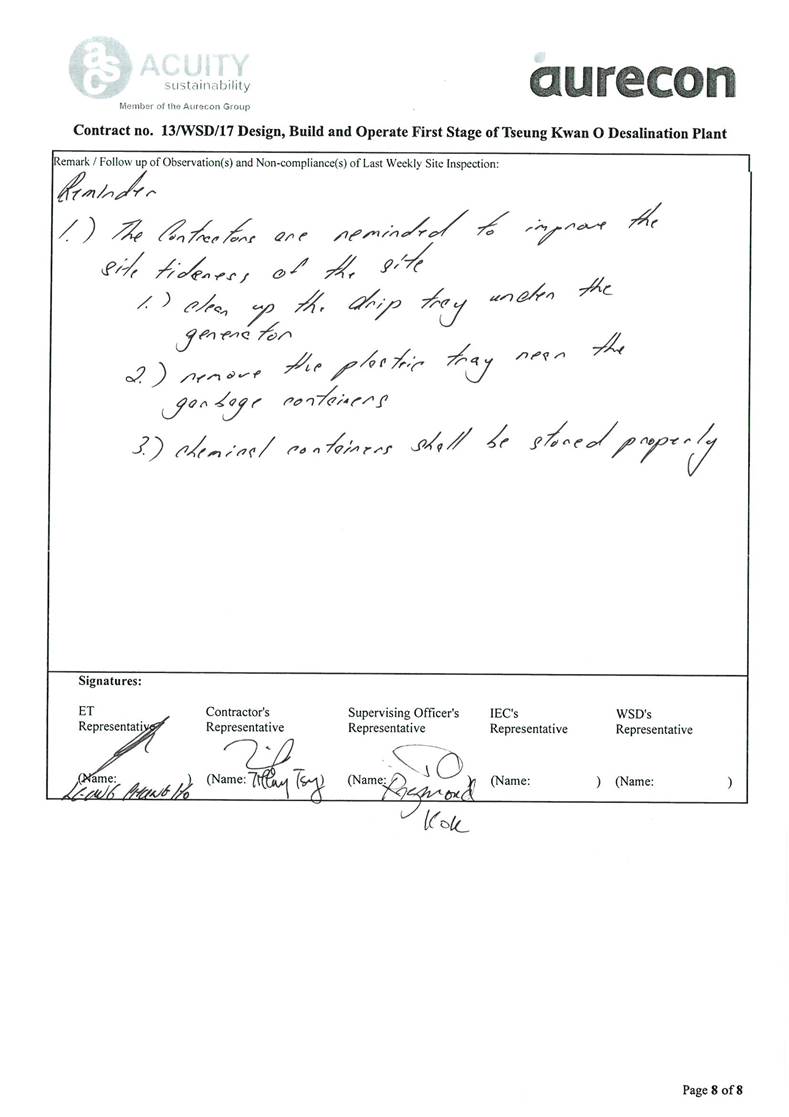 asc ACUITY
sustainability
Member of the Aurecon Group
aurecon
Contract no. 13/WSD/17 Design, Build and Operate First Stage of Tseung Kwan O Desalination Plant
Remark / Follow up of Observation(s) and Non-compliance(s) of Last Weekly Site Inspection:
Reminder
1.) The Contractors are reminded to improve the
site tideness of the site
1.) clean up the drip tray under the
generator
2.) remove the plastic tray near the
garbage containers
3.) chemical containers shall be stored properly
Signatures:
ET Representative
Contractor's Representative
Supervising Officer's Representative
IEC's Representative
WSD's Representative
(Name: )
(Name: Tiffany Tsy)
(Name: Raymond
(Name: )
(Name: )
Kok
Page 8 of 8